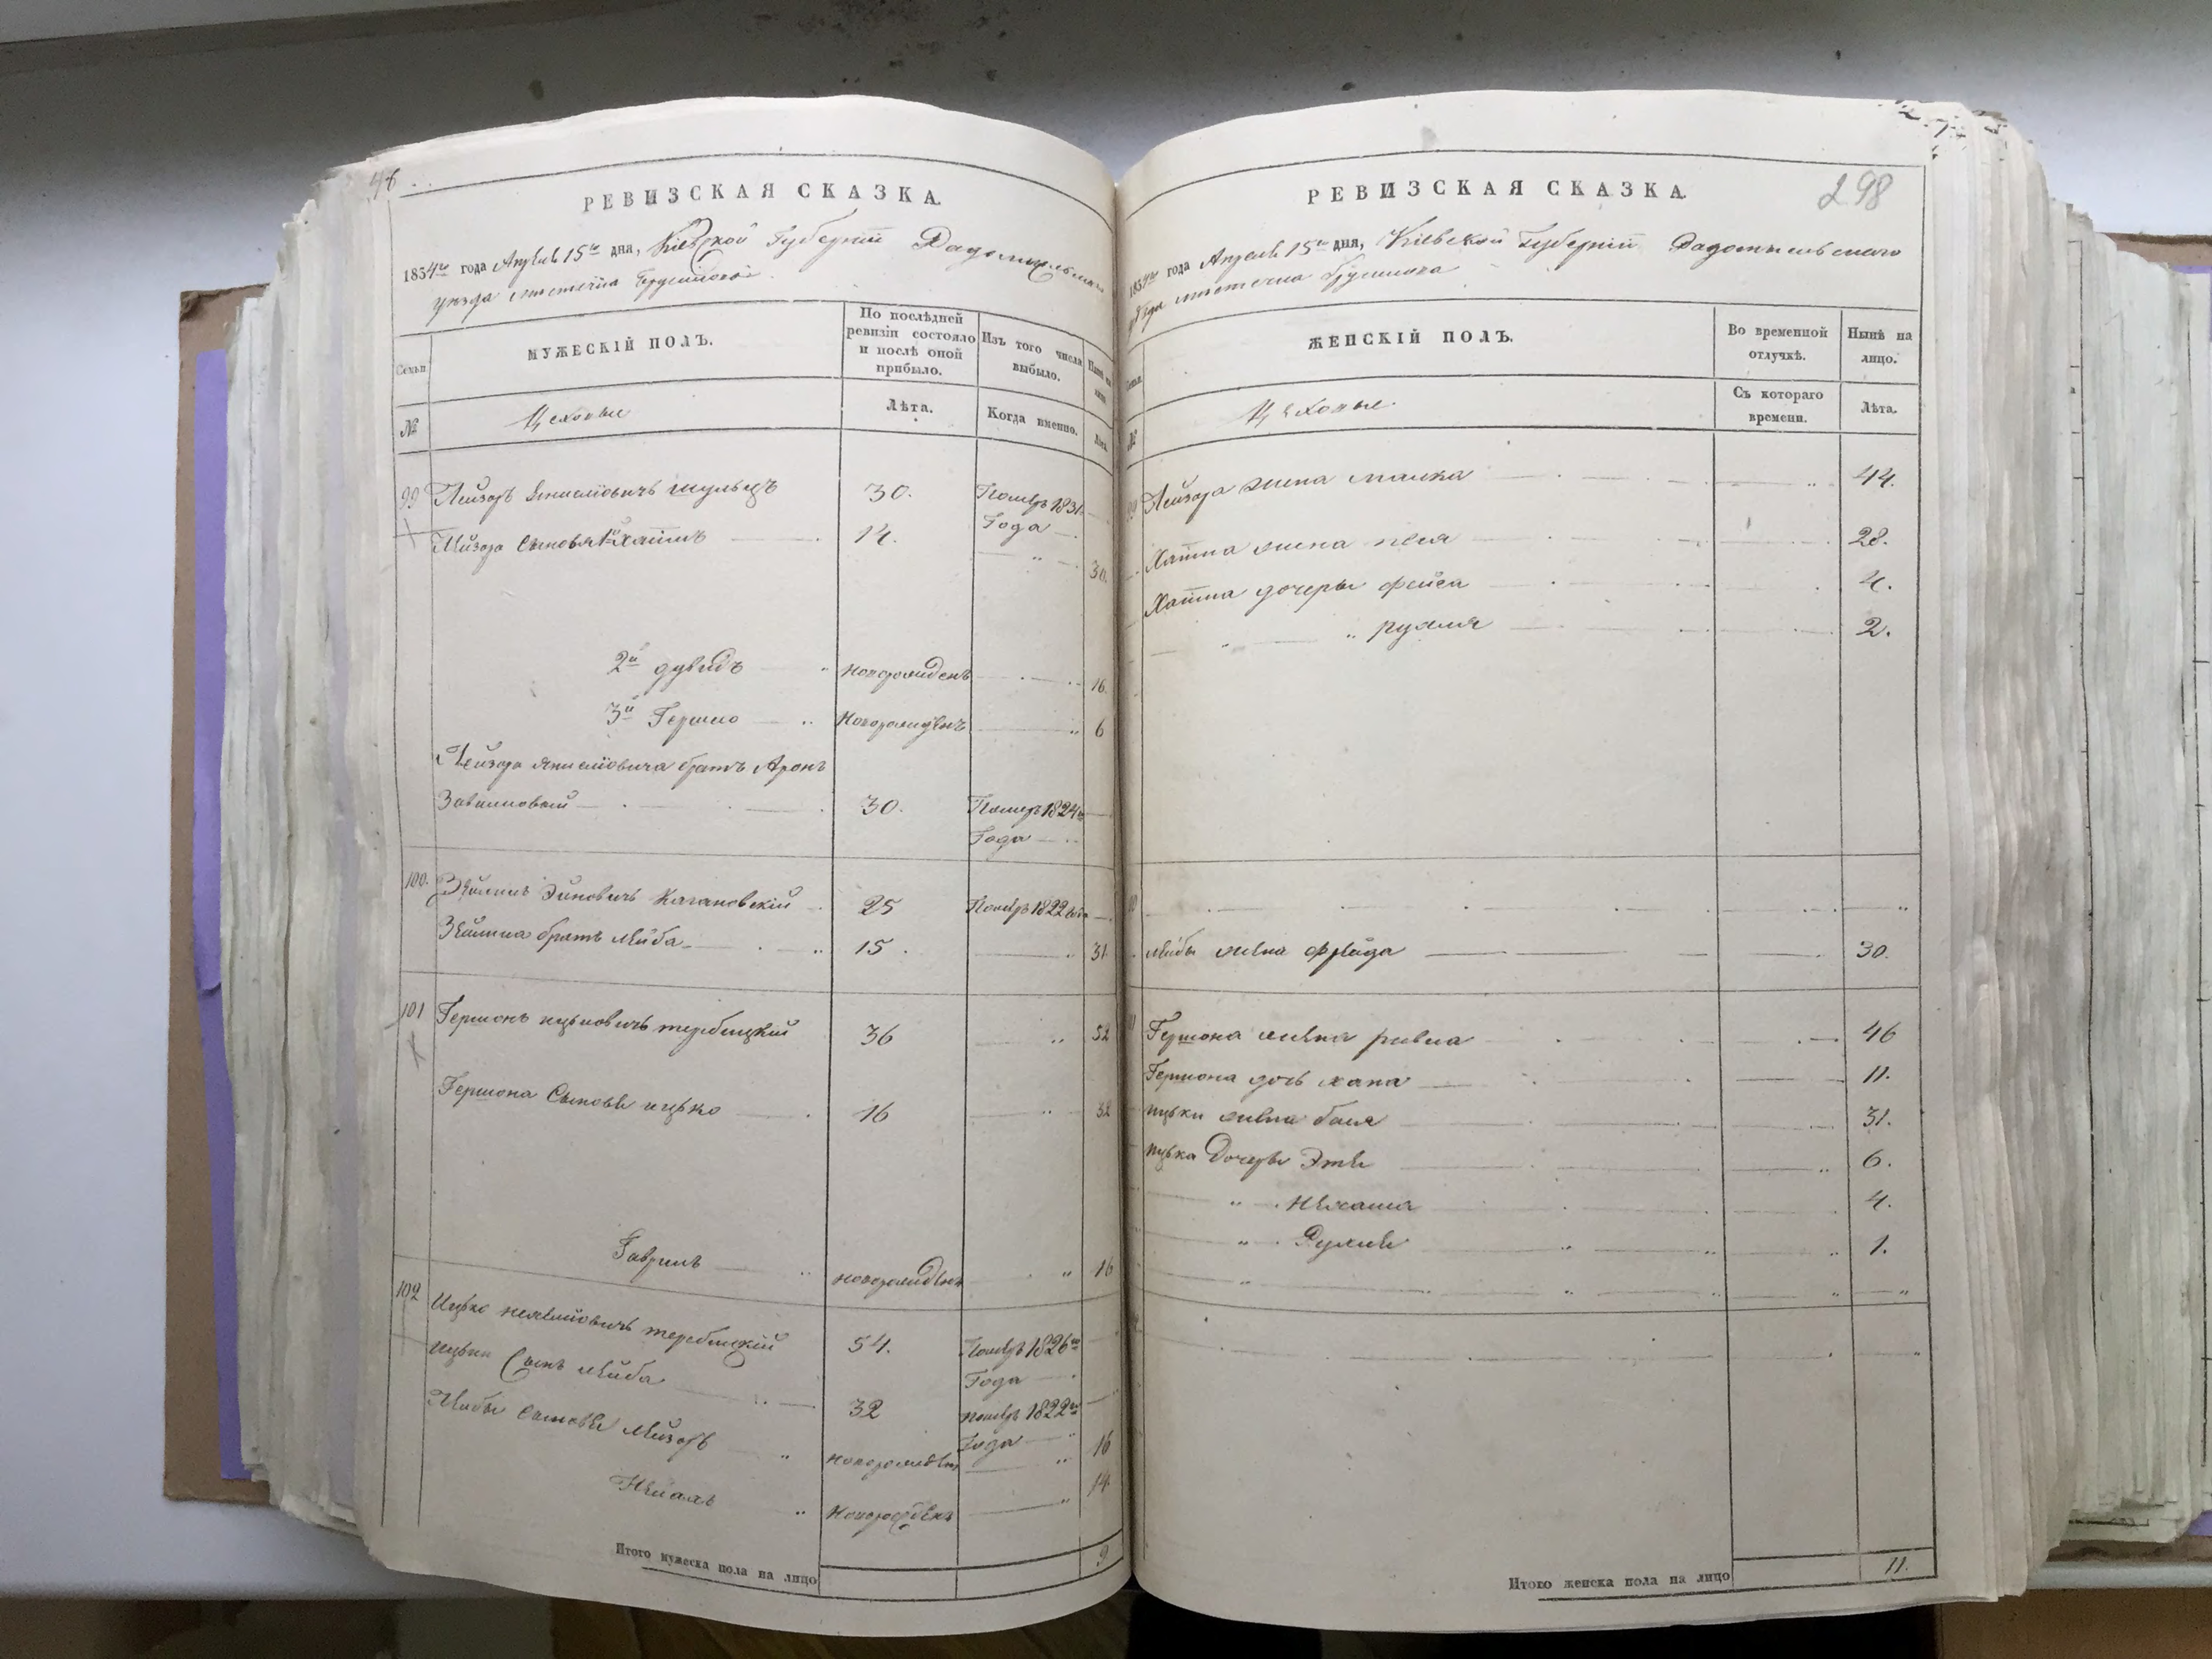 48
РЕВИЗСКАЯ СКАЗКА.
1854го года Апреля 15го дня, Кіевской Губерніи Радомысльского
уезда местечка Брусилова
Семьи.
МУЖЕСКІЙ ПОЛЪ.
По послѣдней ревизіи состояло и послѣ оной прибыло.
Изъ того числа выбыло.
Нынѣ на лицо
№
Цеховые
Лѣта.
Когда именно.
Лѣта
99 Лейзоръ Янкелiовичъ шульцъ 30. Померъ 1831
Года
Лейзора Сыновья 1й Хаимъ 14. 30.
2й дувидъ новорожденъ 16.
3й Гершко Новорожденъ 6
Лейзора Янкелiовича братъ Аронъ
30. Померъ 1824го
Года
100. Зейликъ Каганов­скій 25 Померъ 1822 года
Зейлика братъ Лейба 15. 31.
101 Гершонъ ицьковичъ теребицкій 36 52
Гершона Сыновья ицько 16 32
Гаврилъ новорожденъ 16
102 Ицько теребицкій 54. Померъ 1826го
Года
Ицька Сынъ Лейба 32 померъ 1822го
Года
Лейбы Сыновья Лейзоръ новорожденъ 16
Новорожденъ 14.
Итого мужеска пола на лицо 9
РЕВИЗСКАЯ СКАЗКА.
298
1854го года Апреля 15го дня, Кіевской Губерніи Радомысльского
уезда местечка Брусилова
Семьи.
ЖЕНСКІЙ ПОЛЪ.
Во временной отлучкѣ.
Нынѣ на лицо.
№
Цеховые.
Съ котораго времени.
Лѣта.
99 Лейзора жена малка 44.
Хаима жена песя 28.
Хаима дочери фейга 4.
" рухля 2.
Лейбы жена фрейда 30.
Гершона жена ривка 46
Гершона дочь хана 11.
ицьки жена бася 31.
ицька Дочери Этя 6.
" Нехама 4.
" Рухля 1.
Итого женска пола на лицо 11.